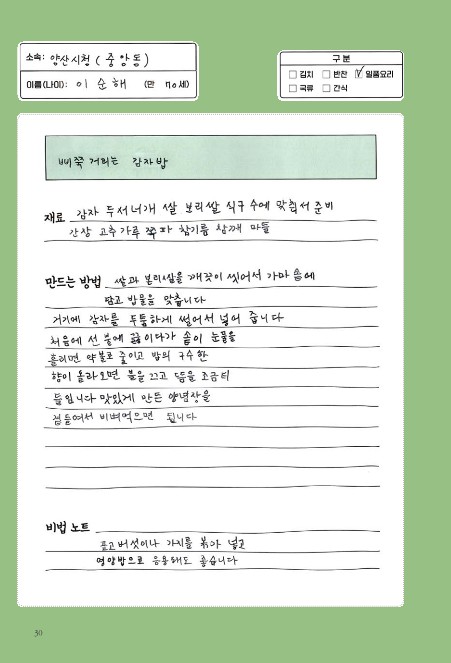 소속: 양산시청 (중앙동)
이름(나이): 이 순 해 (만 70세)
구 분
김치 반찬 일품요리
국류 간식
삐쭉 거리는 감자밥
재료 감자 두서너개 쌀 보리쌀 식구 수에 맞춰서 준비
간장 고추가루 쪽파 참기름 참깨 마늘
만드는 방법 쌀과 보리쌀을 깨끗이 씻어서 가마 솥에
담고 밥물을 맞춥니다
거기에 감자를 두툼하게 썰어서 넣어 줍니다
처음에 센 불에 끓이다가 솥이 눈물을
흘리면 약불로 줄이고 밥의 구수한
향이 올라오면 불을 끄고 뜸을 조금 더
들입니다 맛있게 만든 양념장을
곁들여서 비벼먹으면 됩니다
비법 노트
표고버섯이나 가지를 볶아 넣고
영양밥으로 응용해도 좋습니다
30